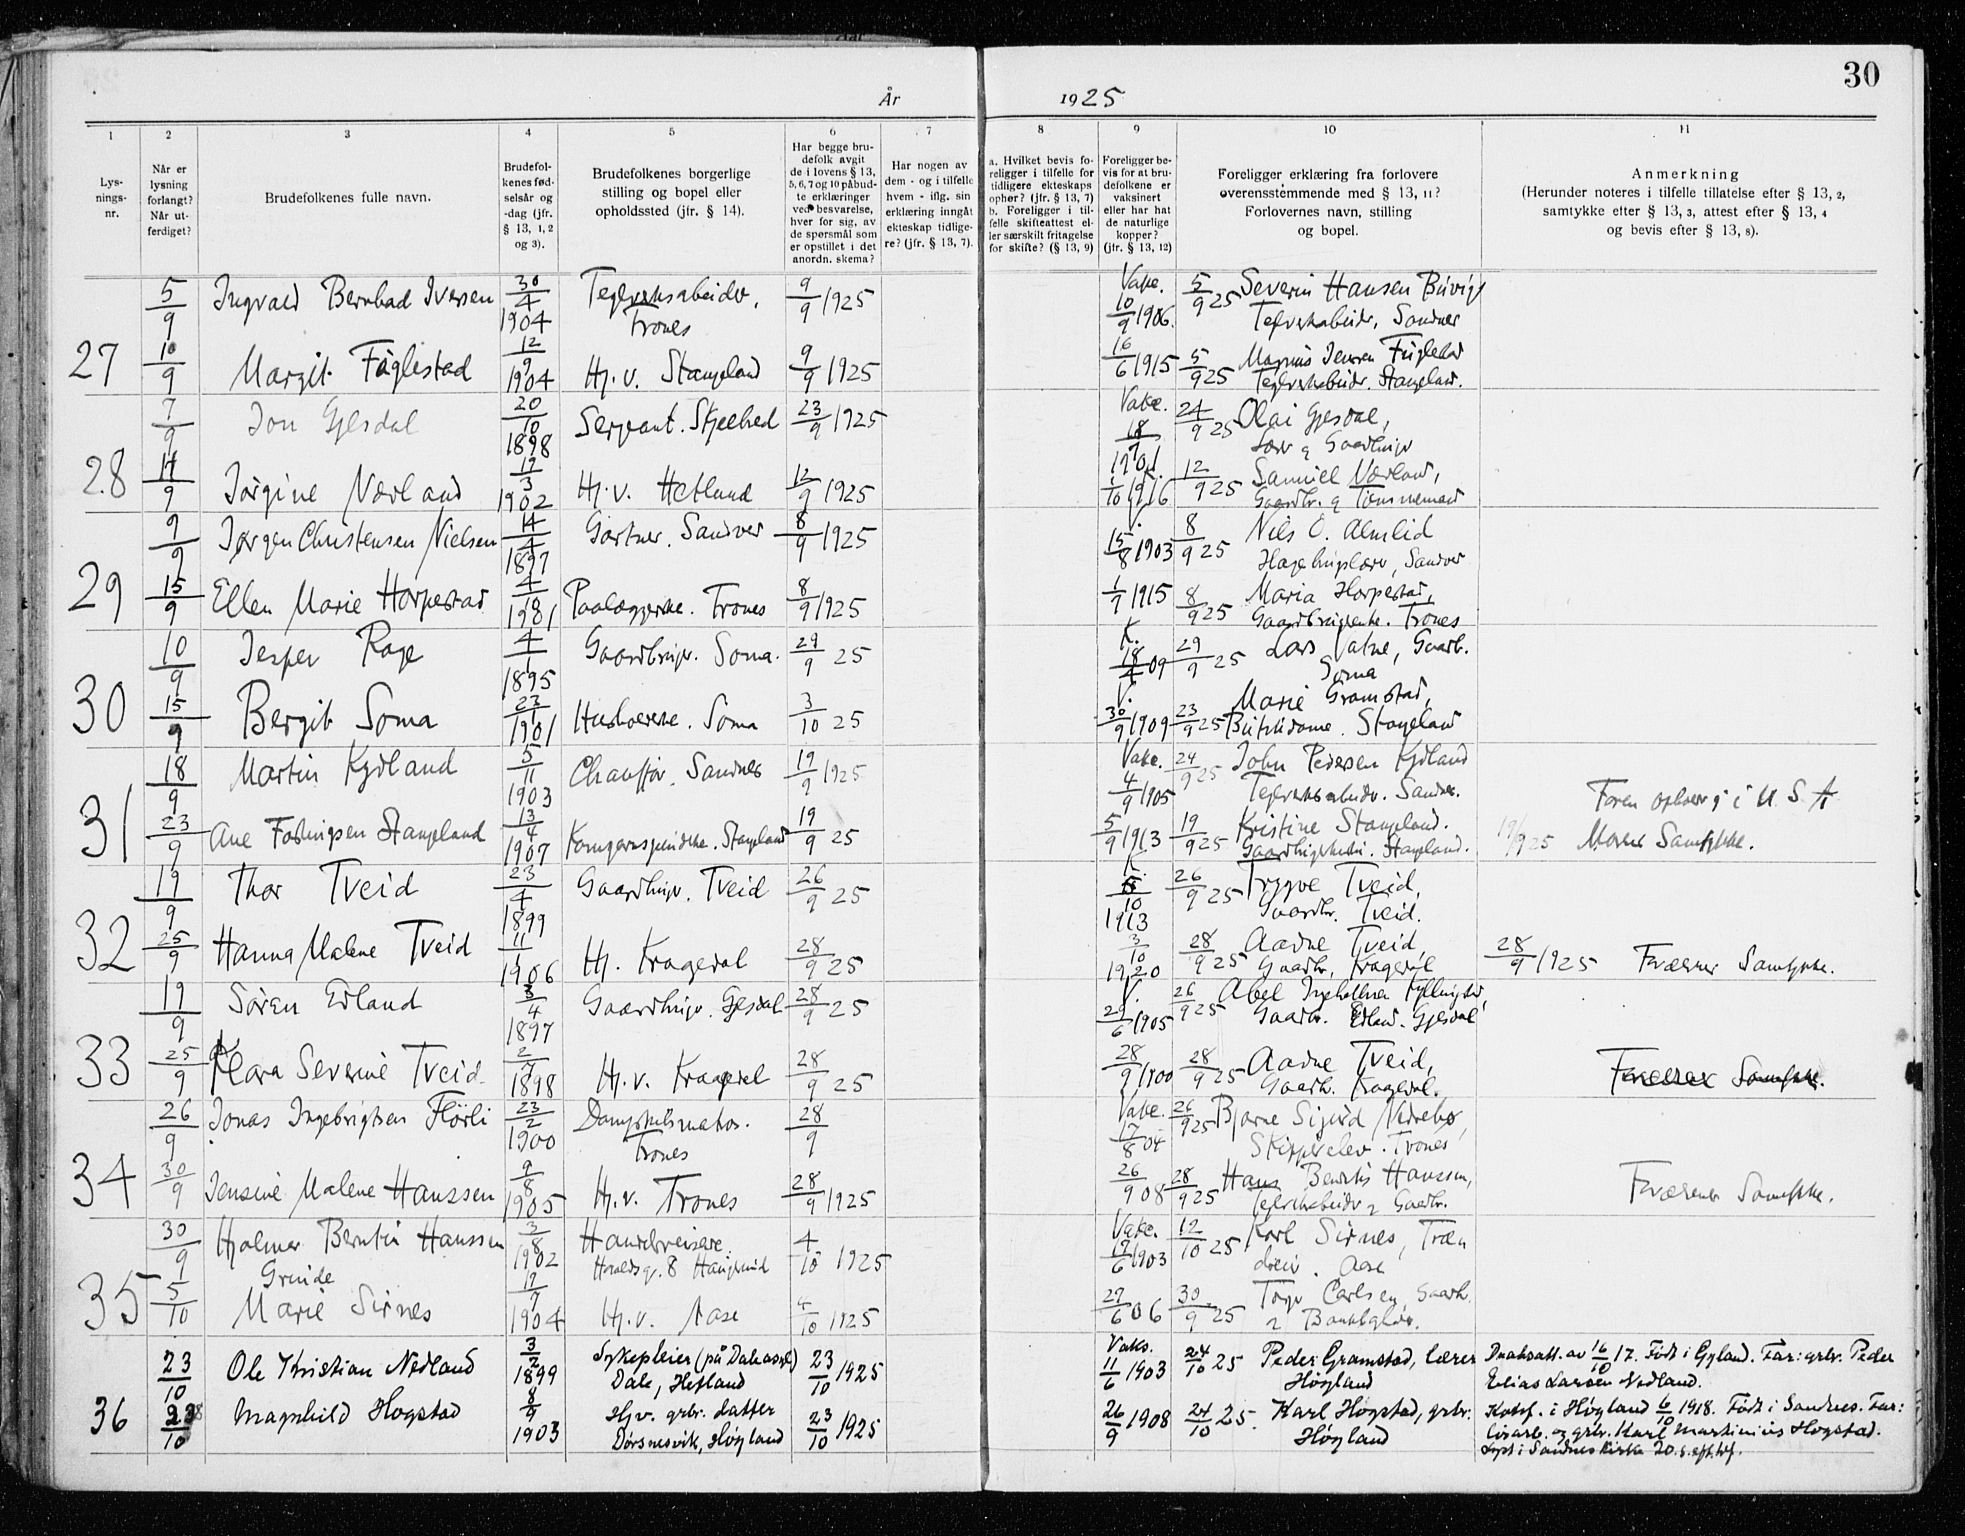 30
År 1925
1 2 3 4 5 6 7 8 9 10 11
Lys-
nings-
nr.
Når er
lysning
forlangt?
Når ut-
ferdiget?
Brudefolkenes fulle navn.
Brudefol-
kenes fød-
selsår og
-dag (jfr.
§ 13, 1, 2
og 3).
Brudefolkenes borgerlige
stilling og bopel eller
opholdssted (jfr. § 14).
Har begge bru-
defolk avgit
de i lovens § 13,
5, 6, 7 og 10 påbud-
te erklæringer
ved besvarelse,
hver for sig, av
de spørsmål som
er opstillet i det
anordn. skema?
Har nogen av
dem - og i tilfelle
hvem - iflg. sin
erklæring inngått
ekteskap tidlige-
re? (jfr. § 13, 7).
a. Hvilket bevis fo-
religger i tilfelle for
tidligere ekteskaps
ophør? (jfr. § 13, 7)
b. Foreligger i til-
felle skifteattest el-
ler særskilt fritagelse
for skifte? (§ 13, 9)
Foreligger be-
vis for at bru-
defolkene er
vaksinert
eller har hat
de naturlige
kopper?
(jfr. § 13, 12)
Foreligger erklæring fra forlovere
overensstemmende med § 13, 11?
Forlovernes navn, stilling
og bopel.
Anmerkning
(Herunder noteres i tilfelle tillatelse efter § 13, 2,
samtykke efter § 13, 3, attest efter § 13, 4
og bevis efter § 13, 8).
5/9 Ingvald Bernhad Iversen 30/4 1904 Teglverksabeider, Trones 9/9 1925 Vakc. 10/9 1906. 5/9 25 Severin Hansen
Sandnes
27 10/9 Margit Fuglestad 12/9 1904 Hj. v. Stangeland 9/9 1925 16/6 1915 5/9 25 Magnus Jensen Fuglestad
Stangeland.
7/9 Jon Gjesdal 20/10 1898 Sergeant. 23/9 1925 Vakc. 24/9 25 Olai Gjesdal,
Gaardbruger
28 14/9 Jørgine Nærland 19/3 1902 Hj. v. Hetland 12/9 1925 1/10 1916 12/9 25 Samuel Nærland,
Gaardbr. &
9/9 Jørgen Christensen Nielsen 14/4 1897 Gartner. Sandnes 8/9 1925 15/8 1903 8/9 25 Nils O. Almlid
Sandnes
29 15/9 Ellen Marie Horpestad 4/ Paalæggerske. Trones 8/9 1925 1/9 1915 8/9 25 Maria Horpestad,
Trones
10/9 Jesper Rage 4/1 1895 Gaardbruger. Soma. 29/9 25 K. 18/4 09 29/9 25 Lars Gaardb.
Soma
30 15/9 Bergit Soma 23/1 1901 Soma 3/10 25 V. 30/9 1909 23/9 25 Marie Gramstad,
Stangeland
18/9 Martin Kydland 5/11 1903 Chauffør. Sandnes 19/9 1925 Vakc. 4/9 1905 24/9 25 John Pedersen Kydland
Teglverksabeider. Sandnes.
31 23/9 Ane Stangeland 13/4 1907 Kamgarnspinderske. Stangeland 19/9 25 5/9 1913 19/9 25 Kristine Stangeland.
Stangeland.
Faren i U. S. A.
19/9 25 Moren Samtykke.
19/9 Thor Tveid 23/4 1899 Gaardbruger. Tveid 26/9 25 K. 10 1913 26/9 25 Trygve Tveid,
Gaardbr. Tveid.
32 25/9 Hanna Malene Tveid 11/1 1906 Hj. Kragedal 28/9 25 3/10 1920 28/9 25 Aadne Tveid,
Gaardbr, Kragedal
28/9 1925 Faderens Samtykke.
19/9 Søren Edland 3/4 1897 Gaardbruger. Gjesdal 28/9 25 V. 29/6 1905 26/9 25 Abel
Gaardbr. Edland. Gjesdal
33 25/9 Klara Severine Tveid 2/7 1898 Hj. v. Kragedal 28/9 25 28/9 1900 28/9 25 Aadne Tveid,
Gaardb. Kragedal.
Faderens Samtykke.
26/9 Jonas Ingebrigtsen Flørli 23/2 1900 Trones 28/9 Vakc. 17/8 04 26/9 25 Bjarne Sigurd Nedrebø,
Skipperelev. Trones
34 30/9 Jensine Malene Hanssen 9/8 1905 Hj. v. Trones 28/9 1925 26/9 08 28/9 25 Hans Hanssen,
Teglverksabeider & Gaardbr.
Faderens Samtykke.
30/9 Hjalmer Berntin Hanssen Grinde 3/8 1902 Handelsreisende. Haraldsg. 8 Haugesund 4/10 1925 Vakc. 17/6 1903 12/10 25 Karl Sirnes,
Aase
35 5/10 Marie Sirnes 17/9 1904 Hj. v. Aase 4/10 1925 27/6 06 30/9 25 Carlsen, Gaardb.
23/10 Ole Kristian Nedland 3/2 1899 Sykepleier (på Dale asyl) Dale, Hetland 23/10 1925 Vaks. 11/6 1903 24/10 25 Peder Gramstad, lærer
Høyland
Daabsatt. av 16/10 17. Født i Gyland. Far: grbr. Peder
Elias Larsen Nedland.
36 28/10 Magnhild Hogstad 8/9 1903 Hjv. grbr. datter Høyland 23/10 1925 26/9 1908 24/10 25. Karl Hogstad, grbr.
Høyland
Konf. i Høyland 6/10 1918. Født i Sandnes. Far:
og grbr. Karl Martinius Hogstad.
Lyst i Sandnes kirke 20. s. eft. tref.